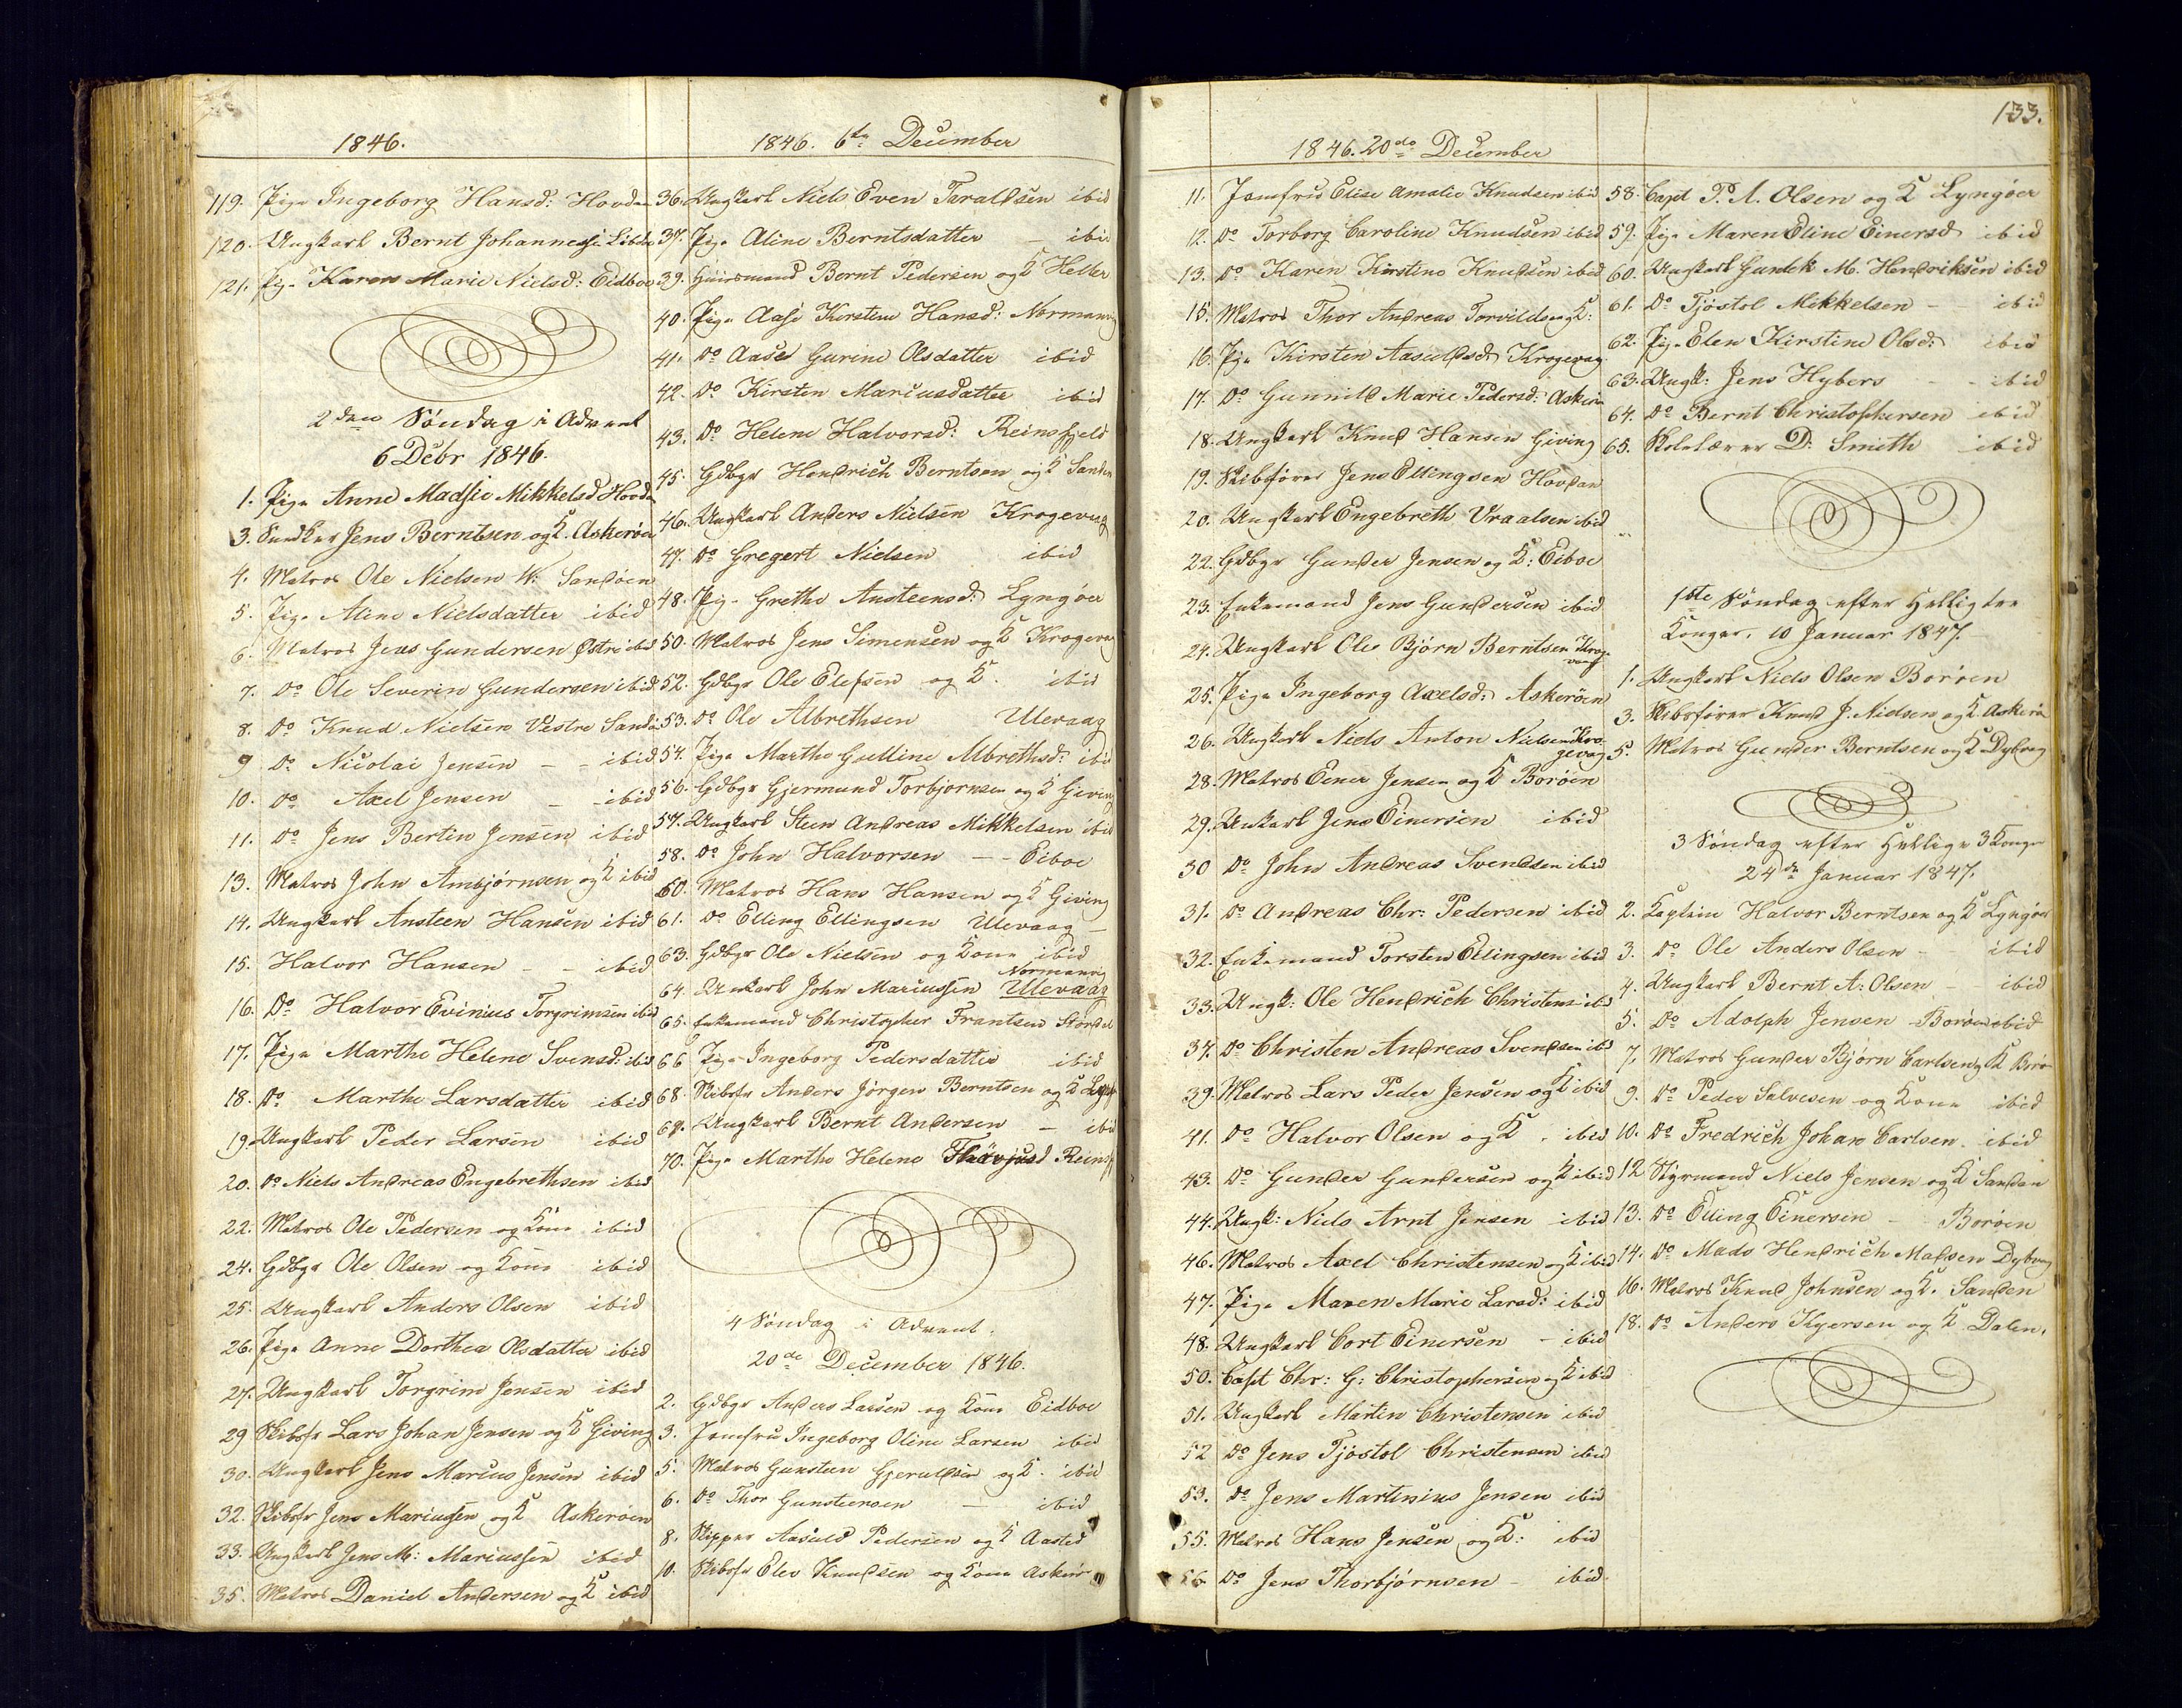 1846.
119. Pige Ingeborg Hansd: Hovden
120. Ungkarl Bernt Johannessen
121. Pige Karen Marie Nielsd: Eidboe
2den Søndag i Advent
6 Decbr 1846.
1. Pige Anne Madsie Mikkelsd Hovden
3. Jens Berntsen og K. Askerøen
4. Matros Ole Nielsen W: Sandøen
5. Pige Aline Nielsdatter ibid
6. Matros Jens Gundersen Østre ibid
7. Do Ole Severin Gundersen ibid
8. Do Knud Nielsen Vestre Sandø
9 Do Nicolai Jensen - - ibid
10. Do Axel Jensen - ibid
11. Do Jens Bertin Jensen ibid
13. Matros John Ambjørnsen og K ibid
14. Ungkarl Ansteen Hansen ibid
15. Halvor Hansen - - ibid
16. Do Halvor Evinius Torgrimsen ibid
17. Pige Marthe Helene Svensd: ibid
18. Do Marthe Larsdatter ibid
19. Ungkarl Peder Larsen ibid
20. Do Niels Andreas Engebrethsen ibid
22. Matros Ole Pedersen og Kone ibid
24. Gdbgr Ole Olsen og Kone ibid
25. Ungkarl Anders Olsen ibid
26. Pige Anne Dorthea Olsdatter ibid
27. Ungkarl Torgrim Jensen ibid
29 Skibsfr Lars Johan Jensen og K Giving
30. Ungkarl Jens Marius Jensen ibid
32. Skibsfr Jens Mariussen og K Askerøen
33. Ungkarl Jens M: Mariussen ibid
35. Matros Daniel Andersen og K ibid
1846. 6te December
36. Ungkarl Niels Even Taraldsen ibid
37. Pige Aline Berntsdatter - ibid
39. Huusmand Bernt Pedersen og K Helle
40. Pige Aase Kirstine Hansd: Normanvig
41. Do Aase Gurine Olsdatter ibid
42. Do Kirsten Mariusdatter ibid
43. Do Helene Halvorsd: Reinsfjeld
45. Gdbgr Hendrich Berntsen og K Sanden
46. Ungkarl Anders Nielsen Krogevaag
47. Do Gregert Nielsen ibid
48. Pige Grethe Ansteensd: Lyngøer
50. Matros Jens Simensen og K Krogevaag
52. Gdbgr Ole Elefsen og K. ibid
53. Do Ole Albrethsen Ulevaag
54. Pige Marthe Gulline Albrethsd: ibid
56. Gdbgr Gjermund Torbjørnsen og K Giving
57. Ungkarl Steen Andreas Mikkelsen ibid
58. Do John Halvorsen - - Eiboe
60. Matros Hans Hansen og K Giving
61. Do Elling Ellingsen Ulevaag -
63. Gdbgr Ole Nielsen og Kone ibid
Normanvig
64. Unkarl John Mariussen Ulevaag
65. Enkemand Christopher Frantsen
66 Pige Ingeborg Pedersdatter ibid
68. Skibsfr Anders Jørgen Berntsen og K
69. Ungkarl Bernt Andersen - ibid
70. Pige Marthe Helene
4 Søndag i Advent.
20de December 1846.
2. Gdbgr Anders Larsen og Kone Eidboe
3. Jomfru Ingeborg Oline Larsen ibid
5. Matros Gunsteen Gjeruldsen og K. ibid
6. Do Thor Gunsteensen - ibid
8. Skipper Aasuld Pedersen og K Aasted
10. Skibsfr Elev Knudsen og Kone Askerø
1846. 20de December
11. Jomfru Elise Amalie Knudsen ibid
12. Do Torborg Caroline Knudsen ibid
13. Do Karen Kirstine Knudsen ibid
15. Matros Thor Andreas Torvildsen og K:
16. Pige Kirsten Aasuldsd: Krogevaag
17. Do Gunnild Marie Pedersd: Askerø
18. Ungkarl Knud Hansen Giving
19. Skibsfører Jens Ellingsen Hovdan
20. Ungkarl Engebreth Vraalsen ibid
22. Gdbgr Gunder Jensen og K: Eiboe
23. Enkemand Jens Gundersen ibid
24. Ungkarl Ole Bjørn Berntsen Kroge
vaag
25. Pige Ingeborg Axelsd: Askerøen
26. Ungkarl Niels Anton Nielsen Kro-
gevag
28. Matros Einer Jensen og K Borøen
29. Unkarl Jens Einersen ibid
30 Do John Andreas Svendsen ibid
31. Do Andreas Chr: Pedersen ibid
32. Enkemand Torsten Ellingsen ibid
33. Ungk: Ole Hendrich Christens ibid
37. Do Christen Andreas Svendsen ibid
39. Matros Lars Peder Jensen og K ibid
41. Do Halvor Olsen og K. ibid
43. Do Gunder Gundersen og K ibid
44. Ungk: Niels Arnt Jensen ibid
46. Matros Axel Christensen og K ibid
47. Pige Maren Marie Larsd: ibid
48. Ungkarl Cort Einersen - ibid
50. Capt Chr: G: Christophersen og K ibid
51. Ungkarl Martin Christensen ibid
52 Do Jens Tjøstol Christensen ibid
53. Do Jens Martinius Jensen ibid
55. Matros Hans Jensen og K: ibid
56 Do Jens Thorbjørnsen - ibid.
133.
58. Capt P. A. Olsen og K Lyngøer
59. Pige Maren Eline Einersd ibid
60. Ungkarl Gunlek M. Hendriksen ibid
61. Do Tjøstol Mikkelsen - ibid
62. Pige Elen Kirstine Olsd: ibid
63. Ungk: Jens Hybers - - ibid
64. Do Bernt Christophersen ibid
65. Skolelærer D: Smith ibid
1ste Søndag efter Hellig tre
Konger, 10 Januar 1847.
1. Ungkarl Niels Olsen Borøen
3. Skibsfører Knud J. Nielsen og K. Askerø
5. Matros Gunder Berntsen og K Dybvag
3 Søndag efter Hellige 3 Konger
24de Januar 1847.
2. Kaptein Halvor Berntsen og K Lyngøer
3. Do Ole Anders Olsen - ibid
4. Ungkarl Bernt A: Olsen - ibid
5. Do Adolph Jensen Borøen ibid
7. Matros Gunder Bjørn Carlsen og K Borø
9. Do Peder Salvesen og Kone ibid
10. Do Fredrich Johan Carlsen. ibid
12 Styrmand Niels Jensen og K Sanden
13. Do Elling Einersen - Borøen
14. Do Mads Hendrich Madsen Dybvag
16. Matros Knud Johnsen og K. Sanden
18. Do Anders Kgersen og K Dalen.